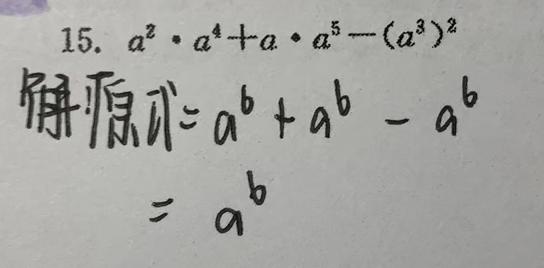 15. a² · a⁴ + a · a⁵ − (a³)²
解:原式 = a⁶ + a⁶ − a⁶
= a⁶